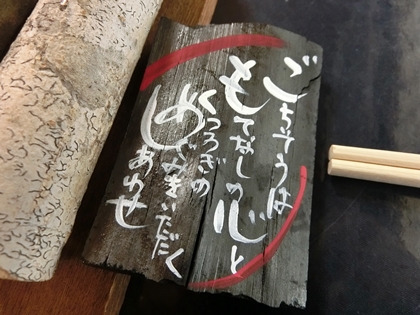 ごちそうは
もてなしの心と
くつろぎの
めぐみをいただく
しあわせ